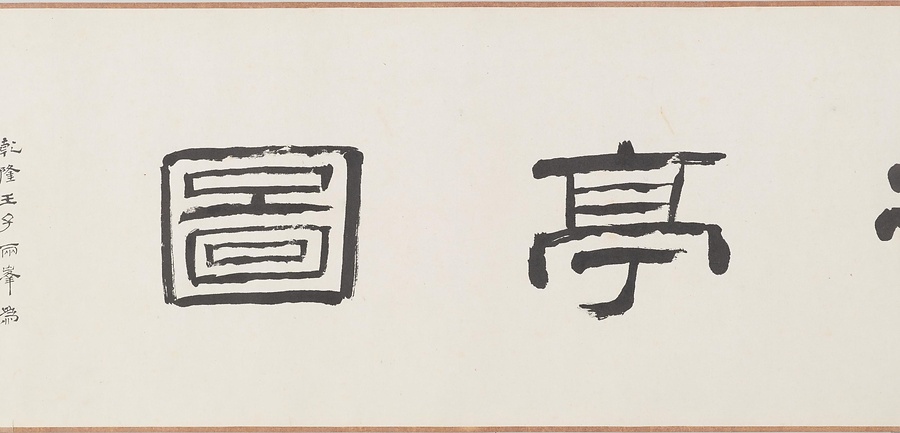 亭圖
乾隆壬子兩峯為